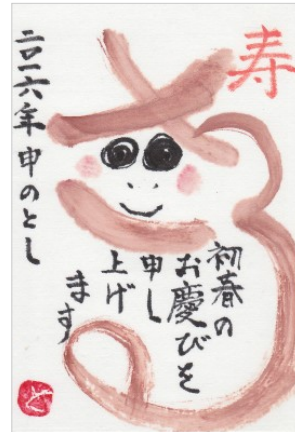 寿
初春の
お慶びを
申し
上げ
ます
二〇一六年申のとし
と